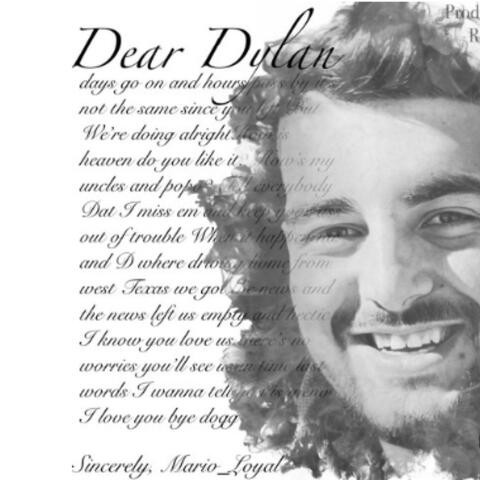 Prod
R
Dear Dylan
days go on and hours pass by it's
not the same since you left But
We're doing alright how is
heaven do you like it How's my
uncles and popo Tell everybody
Dat I miss em and keep
out of trouble When it happen me
and D where driving home from
west Texas we got the news and
the news left us empty and hectic
I know you love us there's no
worries you'll see us last
words I wanna tell
I love you bye dogg
Sincerely, Mario_Loyal